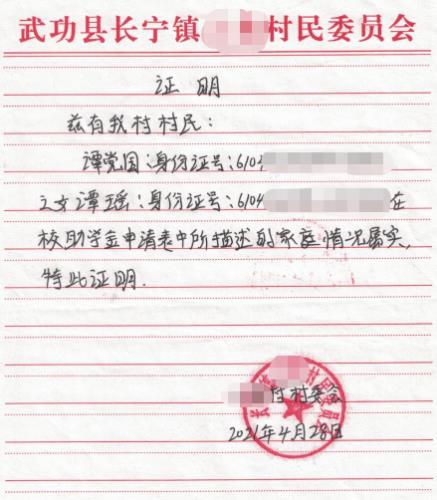 武功县长宁镇 村民委员会
证明
兹有我村村民：
谭党国：身份证号：6104
之女谭瑶：身份证号：6104 在
校助学金申请表中所描述的家庭情况属实，
特此证明.
村委会
2021年4月28日